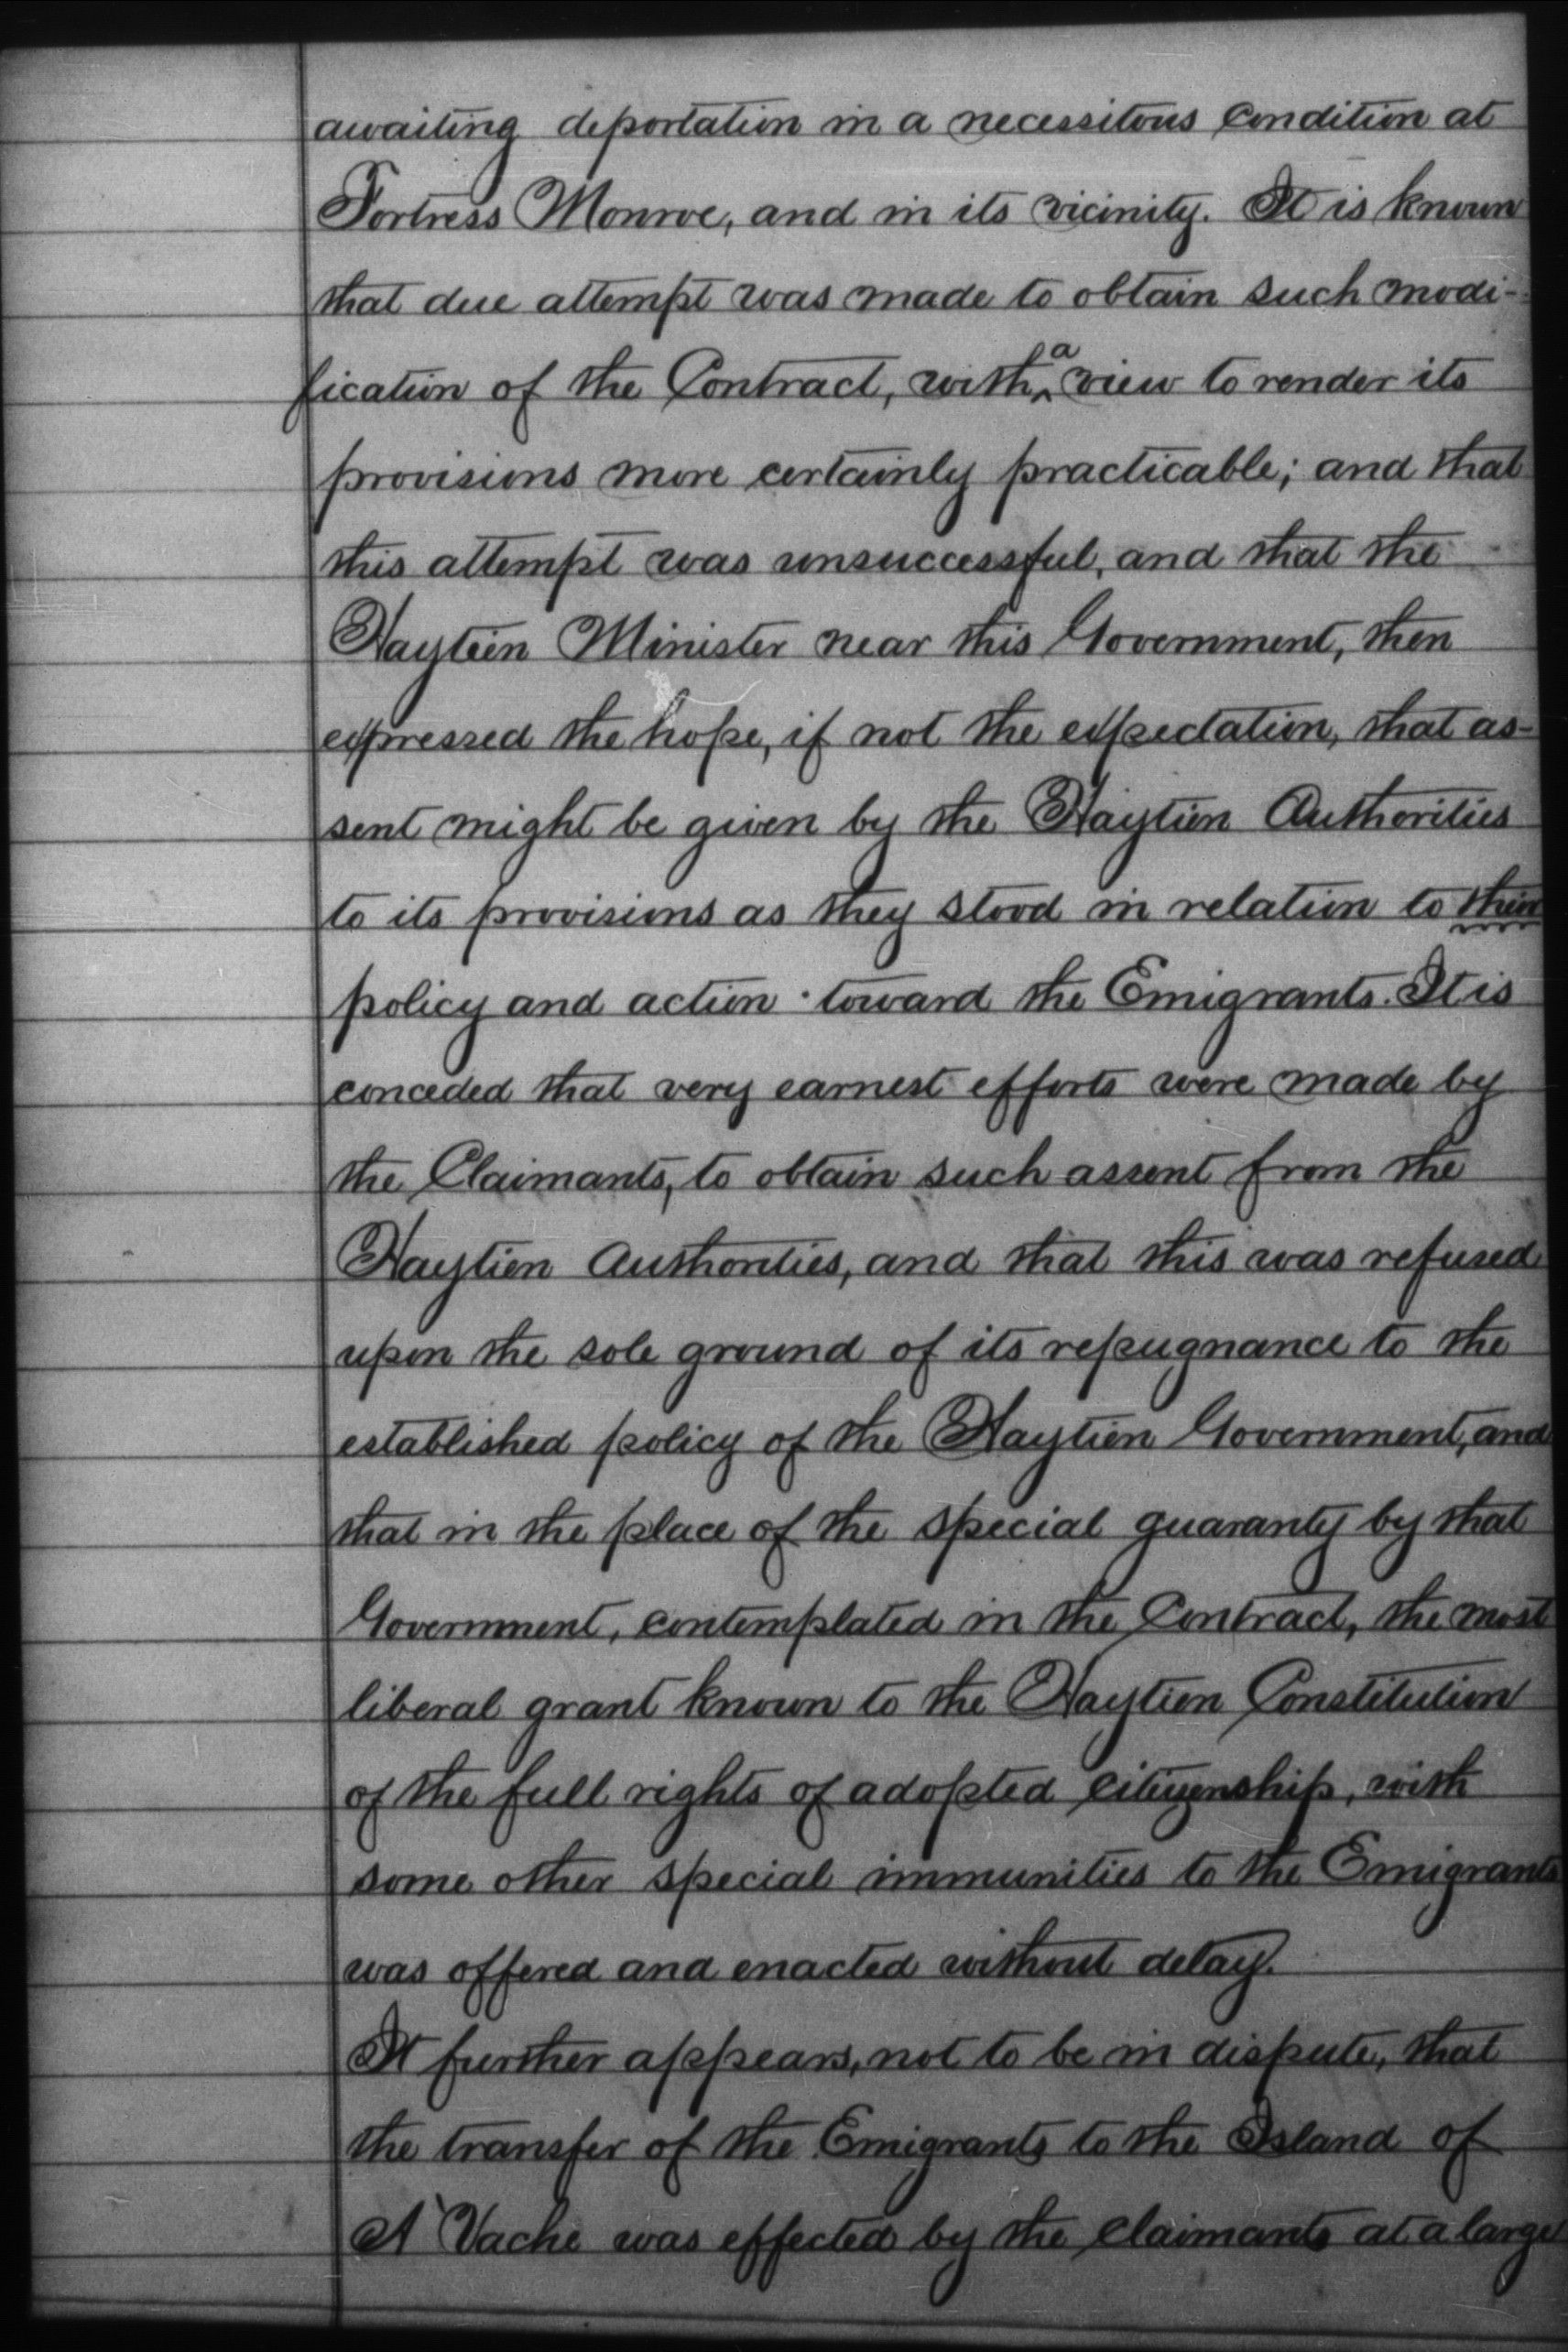 awaiting deportation in a necessitous condition at
Fortress Monroe, and in its vicinity. It is known
that due attempt was made to obtain such modi-
fication of the Contract, with a view to render its
provisions more certainly practicable; and that
this attempt was unsuccessful, and that the
Haytien Minister near this Government, then
expressed the hope, if not the expectation, that as-
sent might be given by the Haytien Authorities
to its provisions as they stood in relation to their
policy and action toward the Emigrants. It is
conceded that very earnest efforts were made by
the Claimants, to obtain such assent from the
Haytien Authorities, and that this was refused
upon the sole ground of its repugnance to the
established policy of the Haytien Government, and
that in the place of the special guaranty by that
Government, contemplated in the Contract, the most
liberal grant known to the Haytien Constitution
of the full rights of adopted citizenship, with
some other special immunities to the Emigrants
was offered and enacted without delay.
It further appears, not to be in dispute, that
the transfer of the Emigrants to the Island of
A'Vache was effected by the Claimants at a large